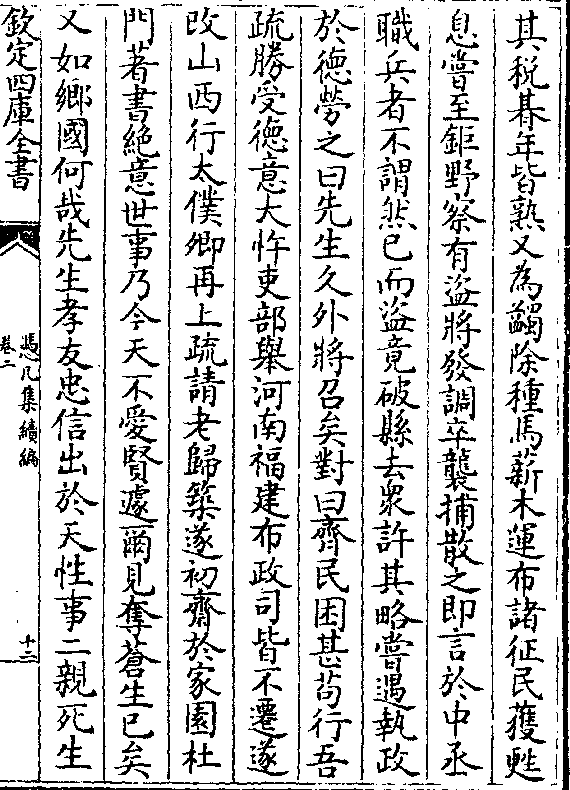 其稅朞年皆熟又為蠲除種馬薪木運布諸征民獲甦
息嘗至鉅野察有盜將發調卒襲捕散之即言於中丞
職兵者不謂然已而盜竟破縣去衆許其略嘗遇執政
於德勞之曰先生久外將召矣對曰齊民困甚苟行吾
疏勝受德意大忤吏部舉河南福建布政司皆不遷遂
改山西行太僕卿再上疏請老歸築遂初齋於家園杜
門著書絶意世事乃今天不愛賢遽爾見奪蒼生已矣
又如鄉國何哉先生孝友忠信出於天性事二親死生
欽定四庫全書
憑几集續編
卷二
十三